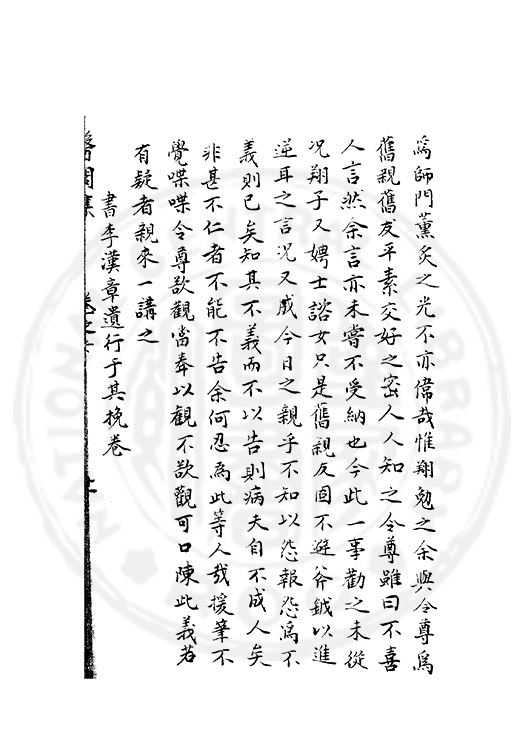 爲師門薰炙之光不亦偉哉惟翔勉之余與令尊爲
舊親舊友平素交好之密人人知之令尊雖曰不喜
人言然余言亦未嘗不受納也今此一事勸之未從
况翔子又娉士諮女只是舊親友固不避斧鉞以進
逆耳之言况又成今日之親乎不知以怨報怨爲不
義則已矣知其不義而不以告則病夫自不成人矣
非甚不仁者不能不告余何忍爲此等人哉援筆不
覺喋喋令尊欲觀當奉以觀不欲觀可口陳此義若
有疑者親來一講之
書李漢章遺行于其挽卷